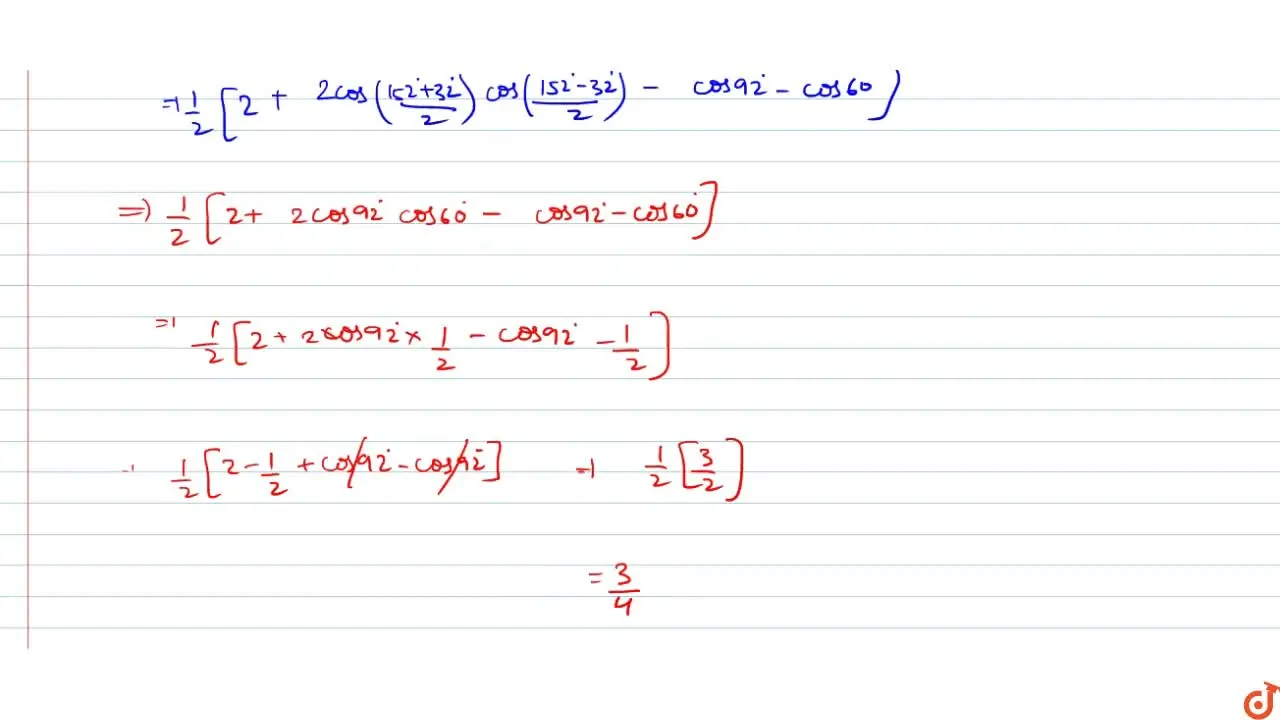 ⇒ 1/2 [2 + 2cos((152°+32°)/2) cos((152°-32°)/2) - cos92° - cos60]
⇒ 1/2 [2 + 2cos92° cos60° - cos92° - cos60°]
⇒ 1/2 [2 + 2×cos92° × 1/2 - cos92° - 1/2]
1/2 [2 - 1/2 + cos92° - cos92°] ⇒ 1/2 [3/2]
= 3/4